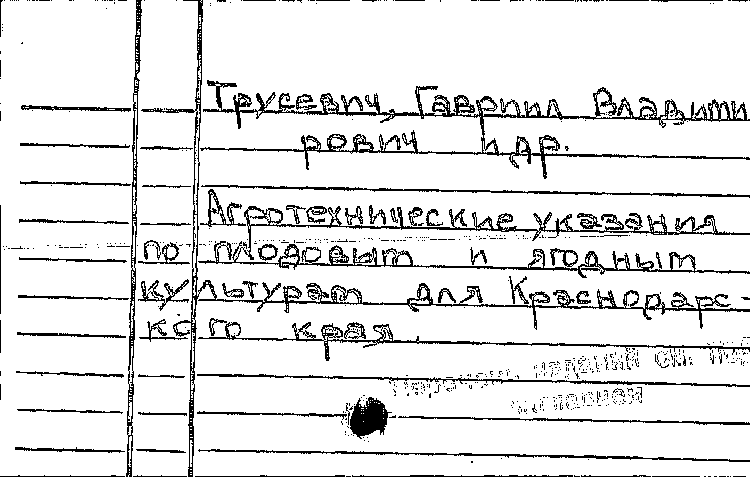 Трусевич, Гавриил Владими
рович и др.
Агротехнические указания
по плодовым и ягодным
культурам для Краснодарс-
кого края.
изданий см. на